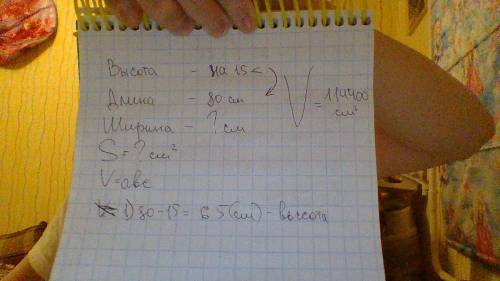 Высота - на 15 <
Длина - 80 см
V = 114400 см³
Ширина - ? см
S = ? см²
V = abc
1) 80 - 15 = 65 (см) - высота